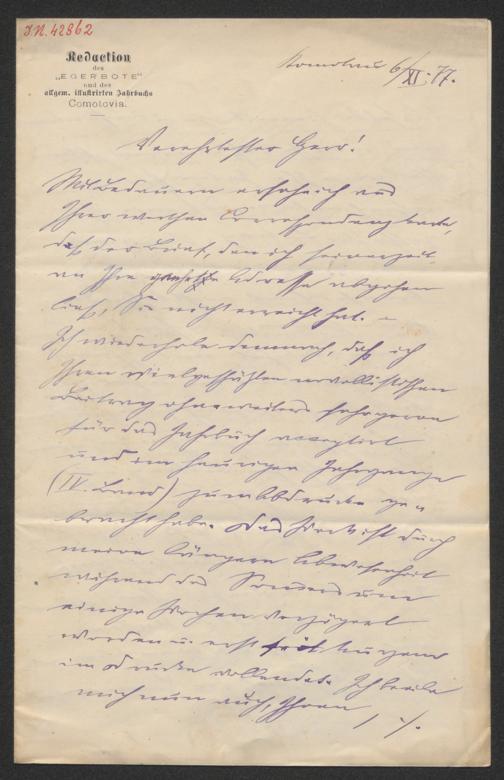 J.N. 42862
Redaction
des
„EGERBOTE“
und des
allgem. illustrirten Jahrbuchs
Comotovia.
Komotau 6/XI. 77.
Verehrtester Herr!
Mit Bedauern ersehe ich aus
Ihrer werthen Correspondenzkarte,
daß der Brief, den ich seinerzeit
an Ihre geschätzte Adresse abgehen
ließ, Sie nicht erreicht hat. –
Ich wiederhole demnach, daß ich
Ihren vielgefühlten novellistischen
Beitrag ohneweiters sehr gerne
für das Jahrbuch acceptirt
und im heurigen Jahrgange
(IV. Band) zum Abdrucke ge-
bracht habe. Das Werk ist durch
meine längere Abwesenheit
während des Sommers um
einige Wochen verzögert
worden u. erst kurzens
im Drucke vollendet. Ich beeile
mich nun auch, Ihnen